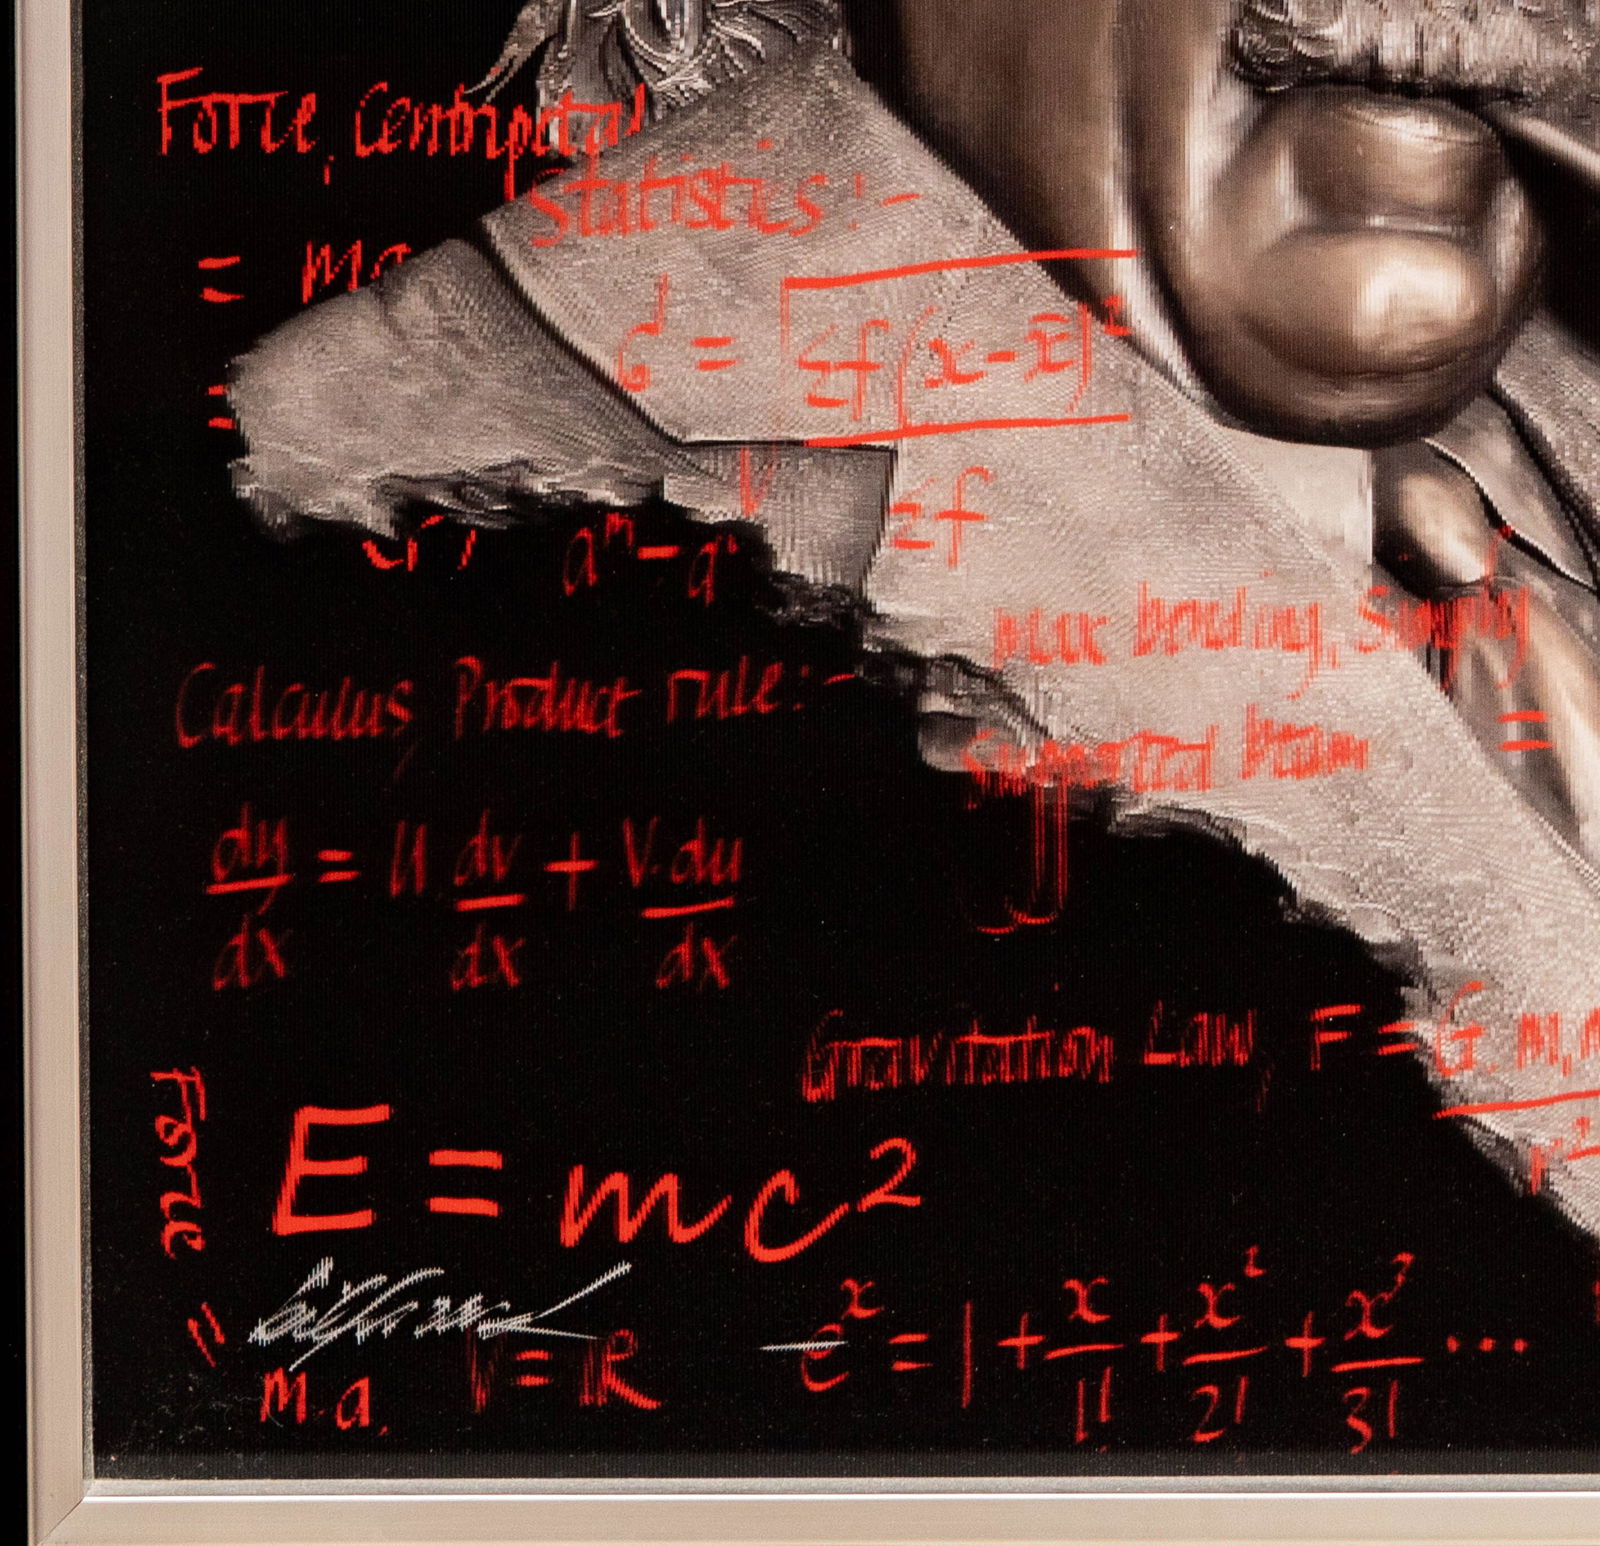 Force, Centripetal
= ma
=
Statistics:-
σ = √Σf(x-x̄)²
Σf
aᵐ-a
Max bending, Simply
supported beam
=
Calculus, Product rule:-
dy/dx = U dv/dx + V.du/dx
Gravitation Law, F = G.m₁m
r²
Force = m.a.
E = mc²
= R
eˣ = 1 + x/1! + x²/2! + x³/3! ...